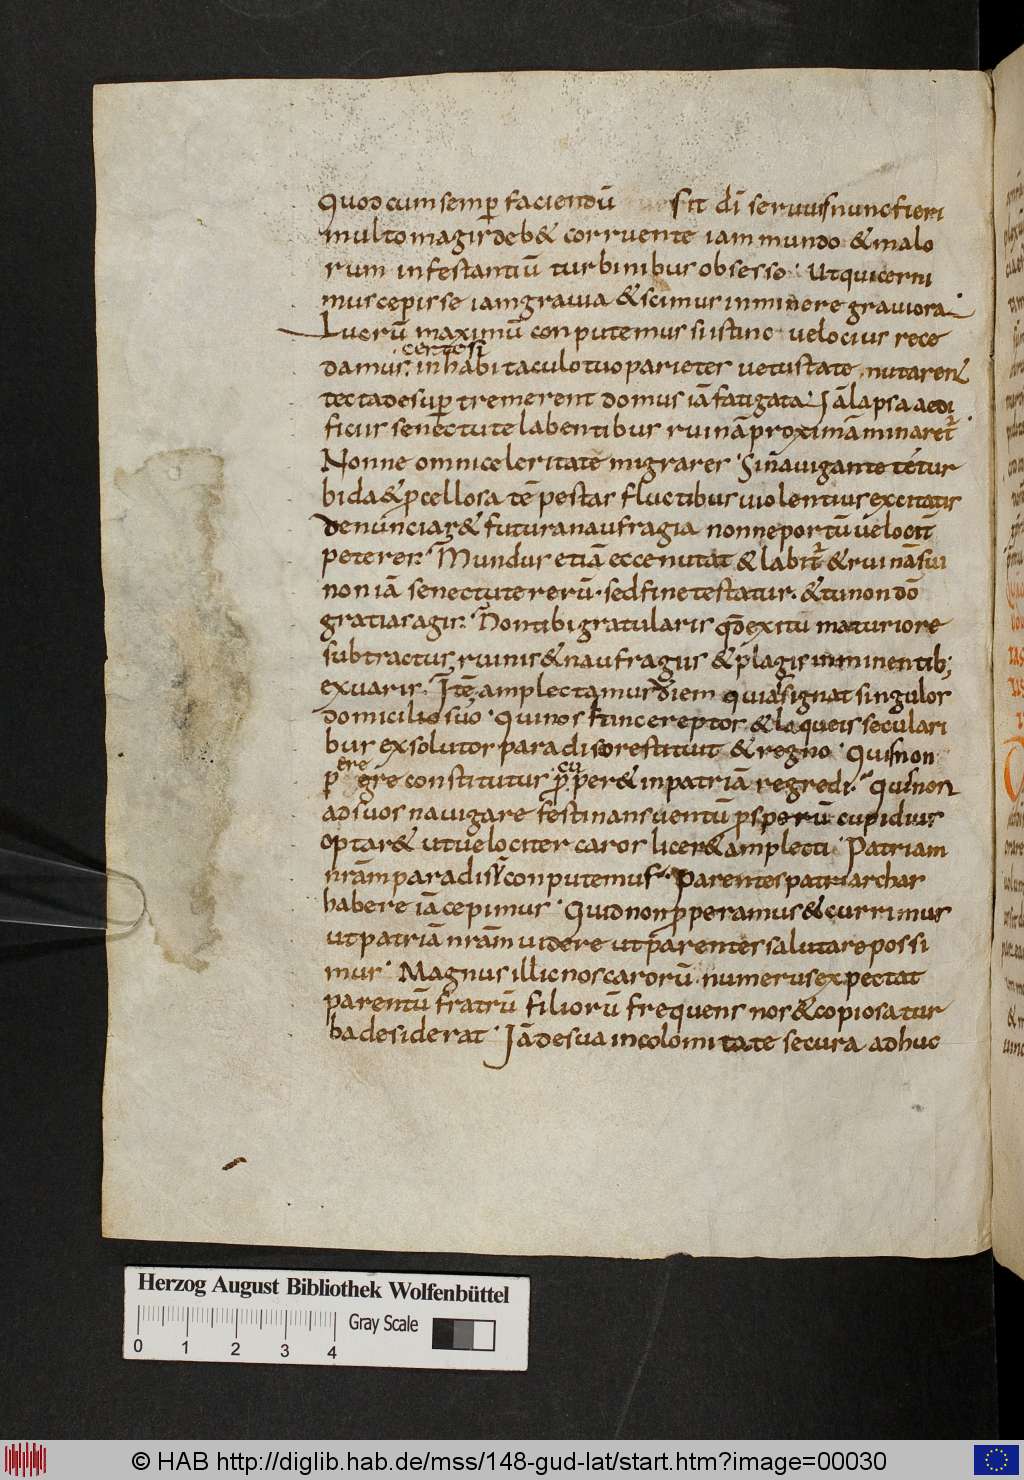 quod cum semp̄ faciendū sit dī servus nunc fieri
multo magis deb& corruente iam mundo & malo
rum infestantiū turbinibus obsesso · Ut qui cerni
mus cepisse iam gravia & scimus inminere graviora ·
Luerū maximū conputemus si istinc velocius rece
certe si
damus · in habitaculo tuo parietes vetustate nutaren&
tecta desup̄ tremerent domus iā fatigata · Iā lapsa aedi
ficiis senectute labentibus ruinā proximā minaret̄ ·
Nonne omni celeritate migrares · Si navigante te tur
bida & procellosa tēpestas fluctibus violentius excitatis
denūnciar& futura naufragia nonne portū velocit̄
peteres · Mundus etiā ecce nutat & labit̄ & ruinā sui
non iā senectute rerū · sed fine testatur · & tu non dō
gratias agis · Non tibi gratularis qđ exitu maturiore
subtractus ruinis & naufragiis & plagis inminentib;
exuaris · Itē amplectamur diem qui assignat singulos
domicilio suo · Qui nos istinc ereptos & laqueis seculari
bus exsolutos paradiso restituit & regno · Quis non
ere cu
p̄ egre constitutus pro per& in patriā regredi · Quis non
ad suos navigare festinans ventū prosperū cupidius
optar& ut velociter caros licer& amplecti · Patriam
nr̄am paradisū conputemus · Parentes patriarchas
habere iā cepimus · Quid non properamus & currimus
ut patriā nr̄am videre ut parentes salutare possi
mus · Magnus illic nos carorū numerus expectat
parentū fratrū filiorū frequens nos & copiosa tur
ba desiderat · Iā de sua incolomitate secura adhuc
Herzog August Bibliothek Wolfenbüttel
Gray Scale
0 1 2 3 4
© HAB http://diglib.hab.de/mss/148-gud-lat/start.htm?image=00030